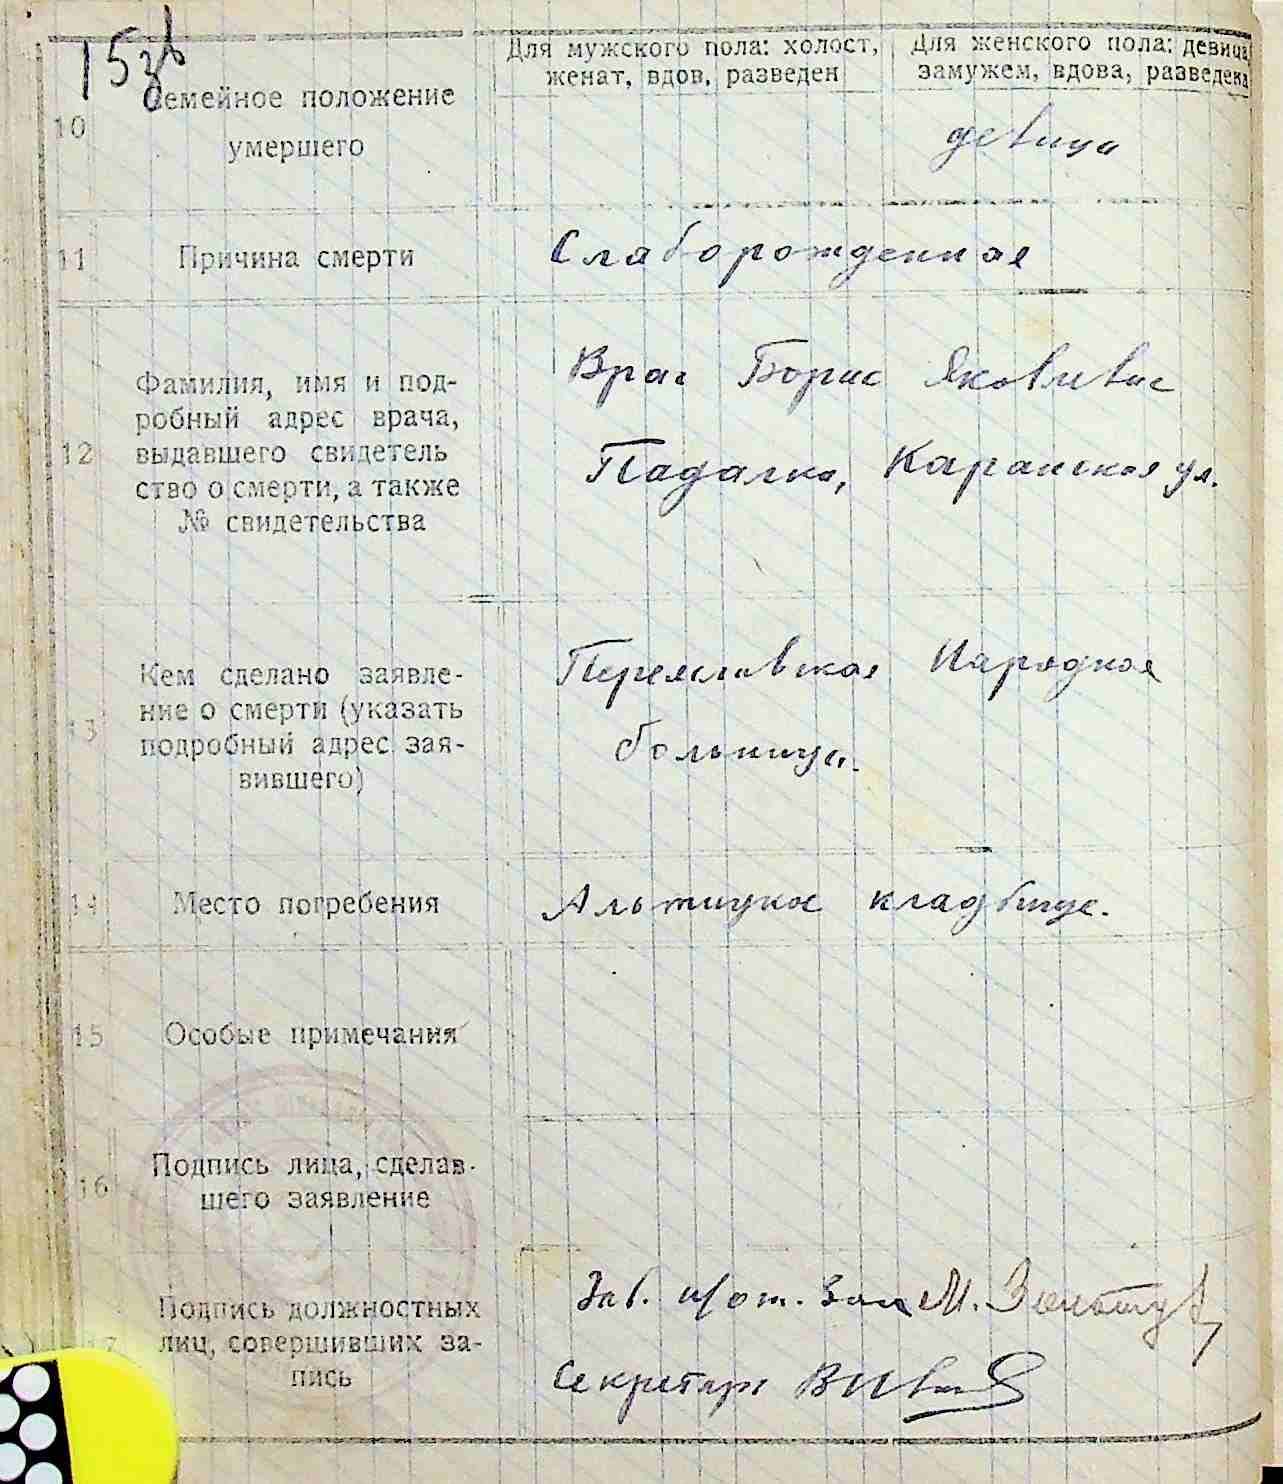 15зв
Для мужского пола: холост,
женат, вдов, разведен
Для женского пола: девица,
замужем, вдова, разведена
10
Семейное положение
умершего
девица
11
Причина смерти
Слаборожденная
12
Фамилия, имя и под-
робный адрес врача,
выдавшего свидетель
ство о смерти, а также
№ свидетельства
Врач Борис Яковлевич
Падалка, Каранская ул.
13
Кем сделано заявле-
ние о смерти (указать
подробный адрес зая-
вившего)
Переяславская Народная
больница.
14
Место погребения
Альтицкое кладбище.
15
Особые примечания
16
Подпись лица, сделав-
шего заявление
17
Подпись должностных
лиц, совершивших за-
пись
Зав. п/от. Загс М.
Секретарь